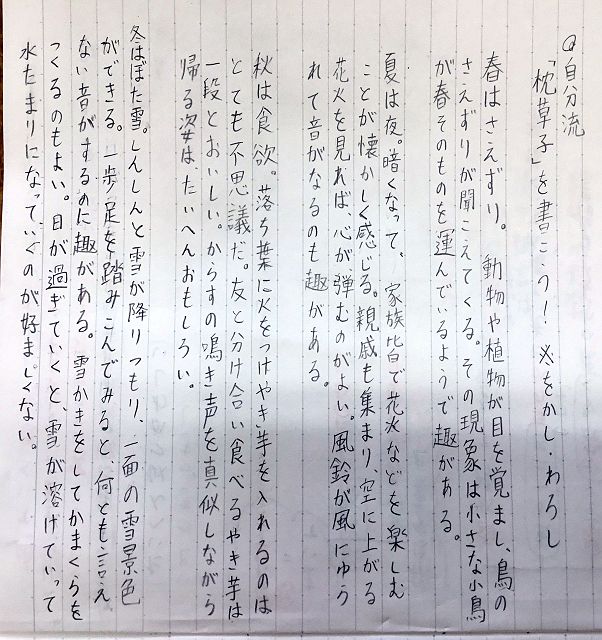 ○自分流
「枕草子」を書こう！ ※をかし・わろし
春はさえずり。動物や植物が目を覚まし、鳥の
さえずりが聞こえてくる。その現象は小さな小鳥
が春そのものを運んでいるようで趣がある。
夏は夜。暗くなって、家族皆で花火などを楽しむ
ことが懐かしく感じる。親戚も集まり、空に上がる
花火を見れば、心が弾むのがよい。風鈴が風にゆら
れて音がなるのも趣がある。
秋は食欲。落ち葉に火をつけやき芋を入れるのは
とても不思議だ。友と分け合い食べるやき芋は
一段とおいしい。からすの鳴き声を真似しながら
帰る姿は、たいへんおもしろい。
冬はぼた雪。しんしんと雪が降りつもり、一面の雪景色
ができる。一歩足を踏みこんでみると、何とも言え
ない音がするのに趣がある。雪かきをしてかまくらを
つくるのもよい。日が過ぎていくと、雪が溶けていって
水たまりになっていくのが好ましくない。